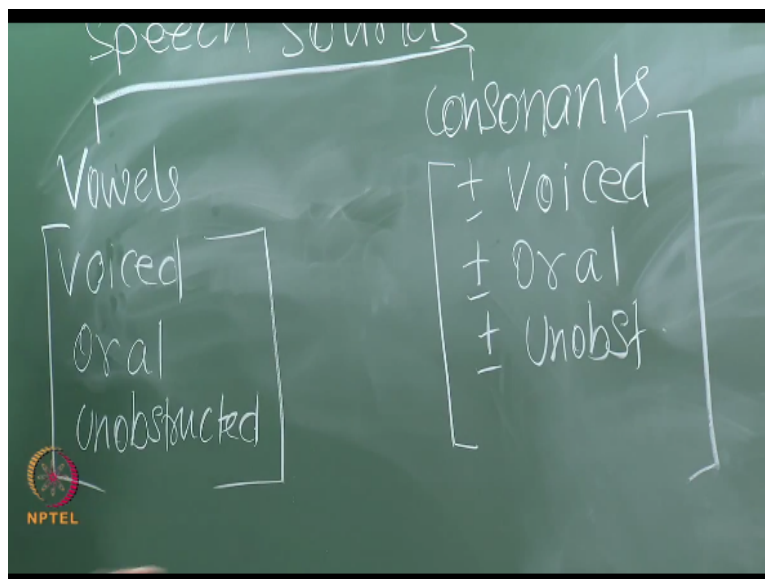 Speech Sounds
Vowels
Voiced
Oral
Unobstructed
Consonants
± Voiced
± Oral
± Unobst.
NPTEL